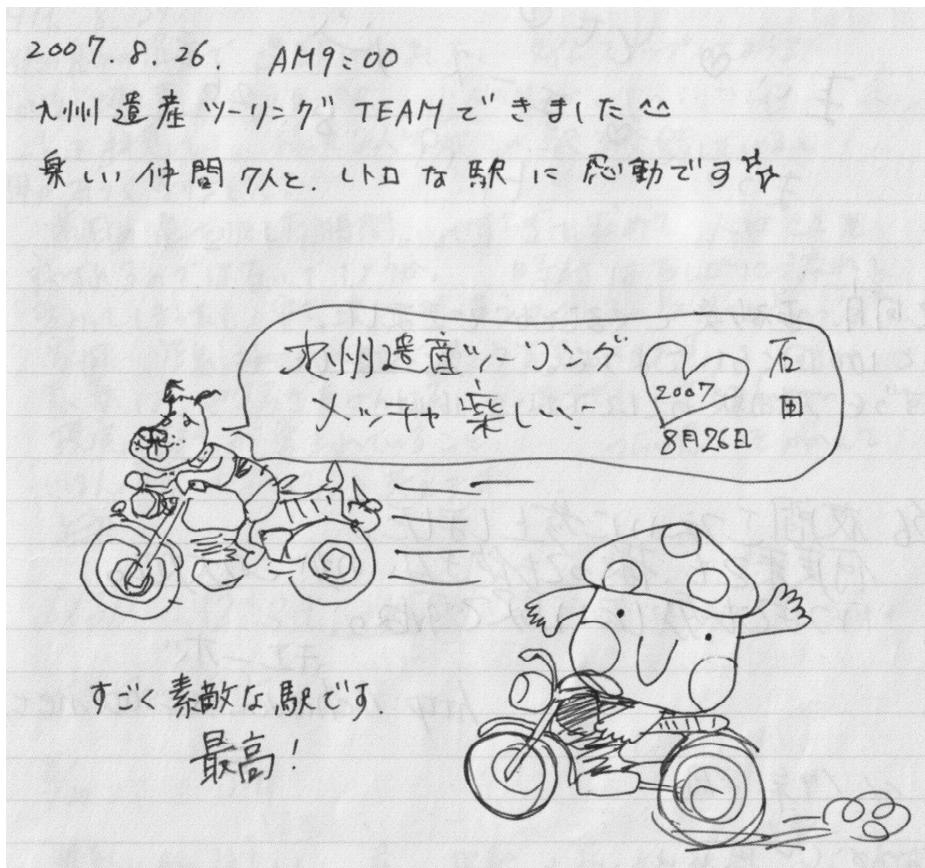 2007.8.26. AM9:00
九州遺産ツーリング TEAMできました^^
楽しい仲間7人と、レトロな駅に感動です☆
九州遺産ツーリング
メッチャ楽しい!
2007
8月26日
石田
すごく素敵な駅です.
最高!